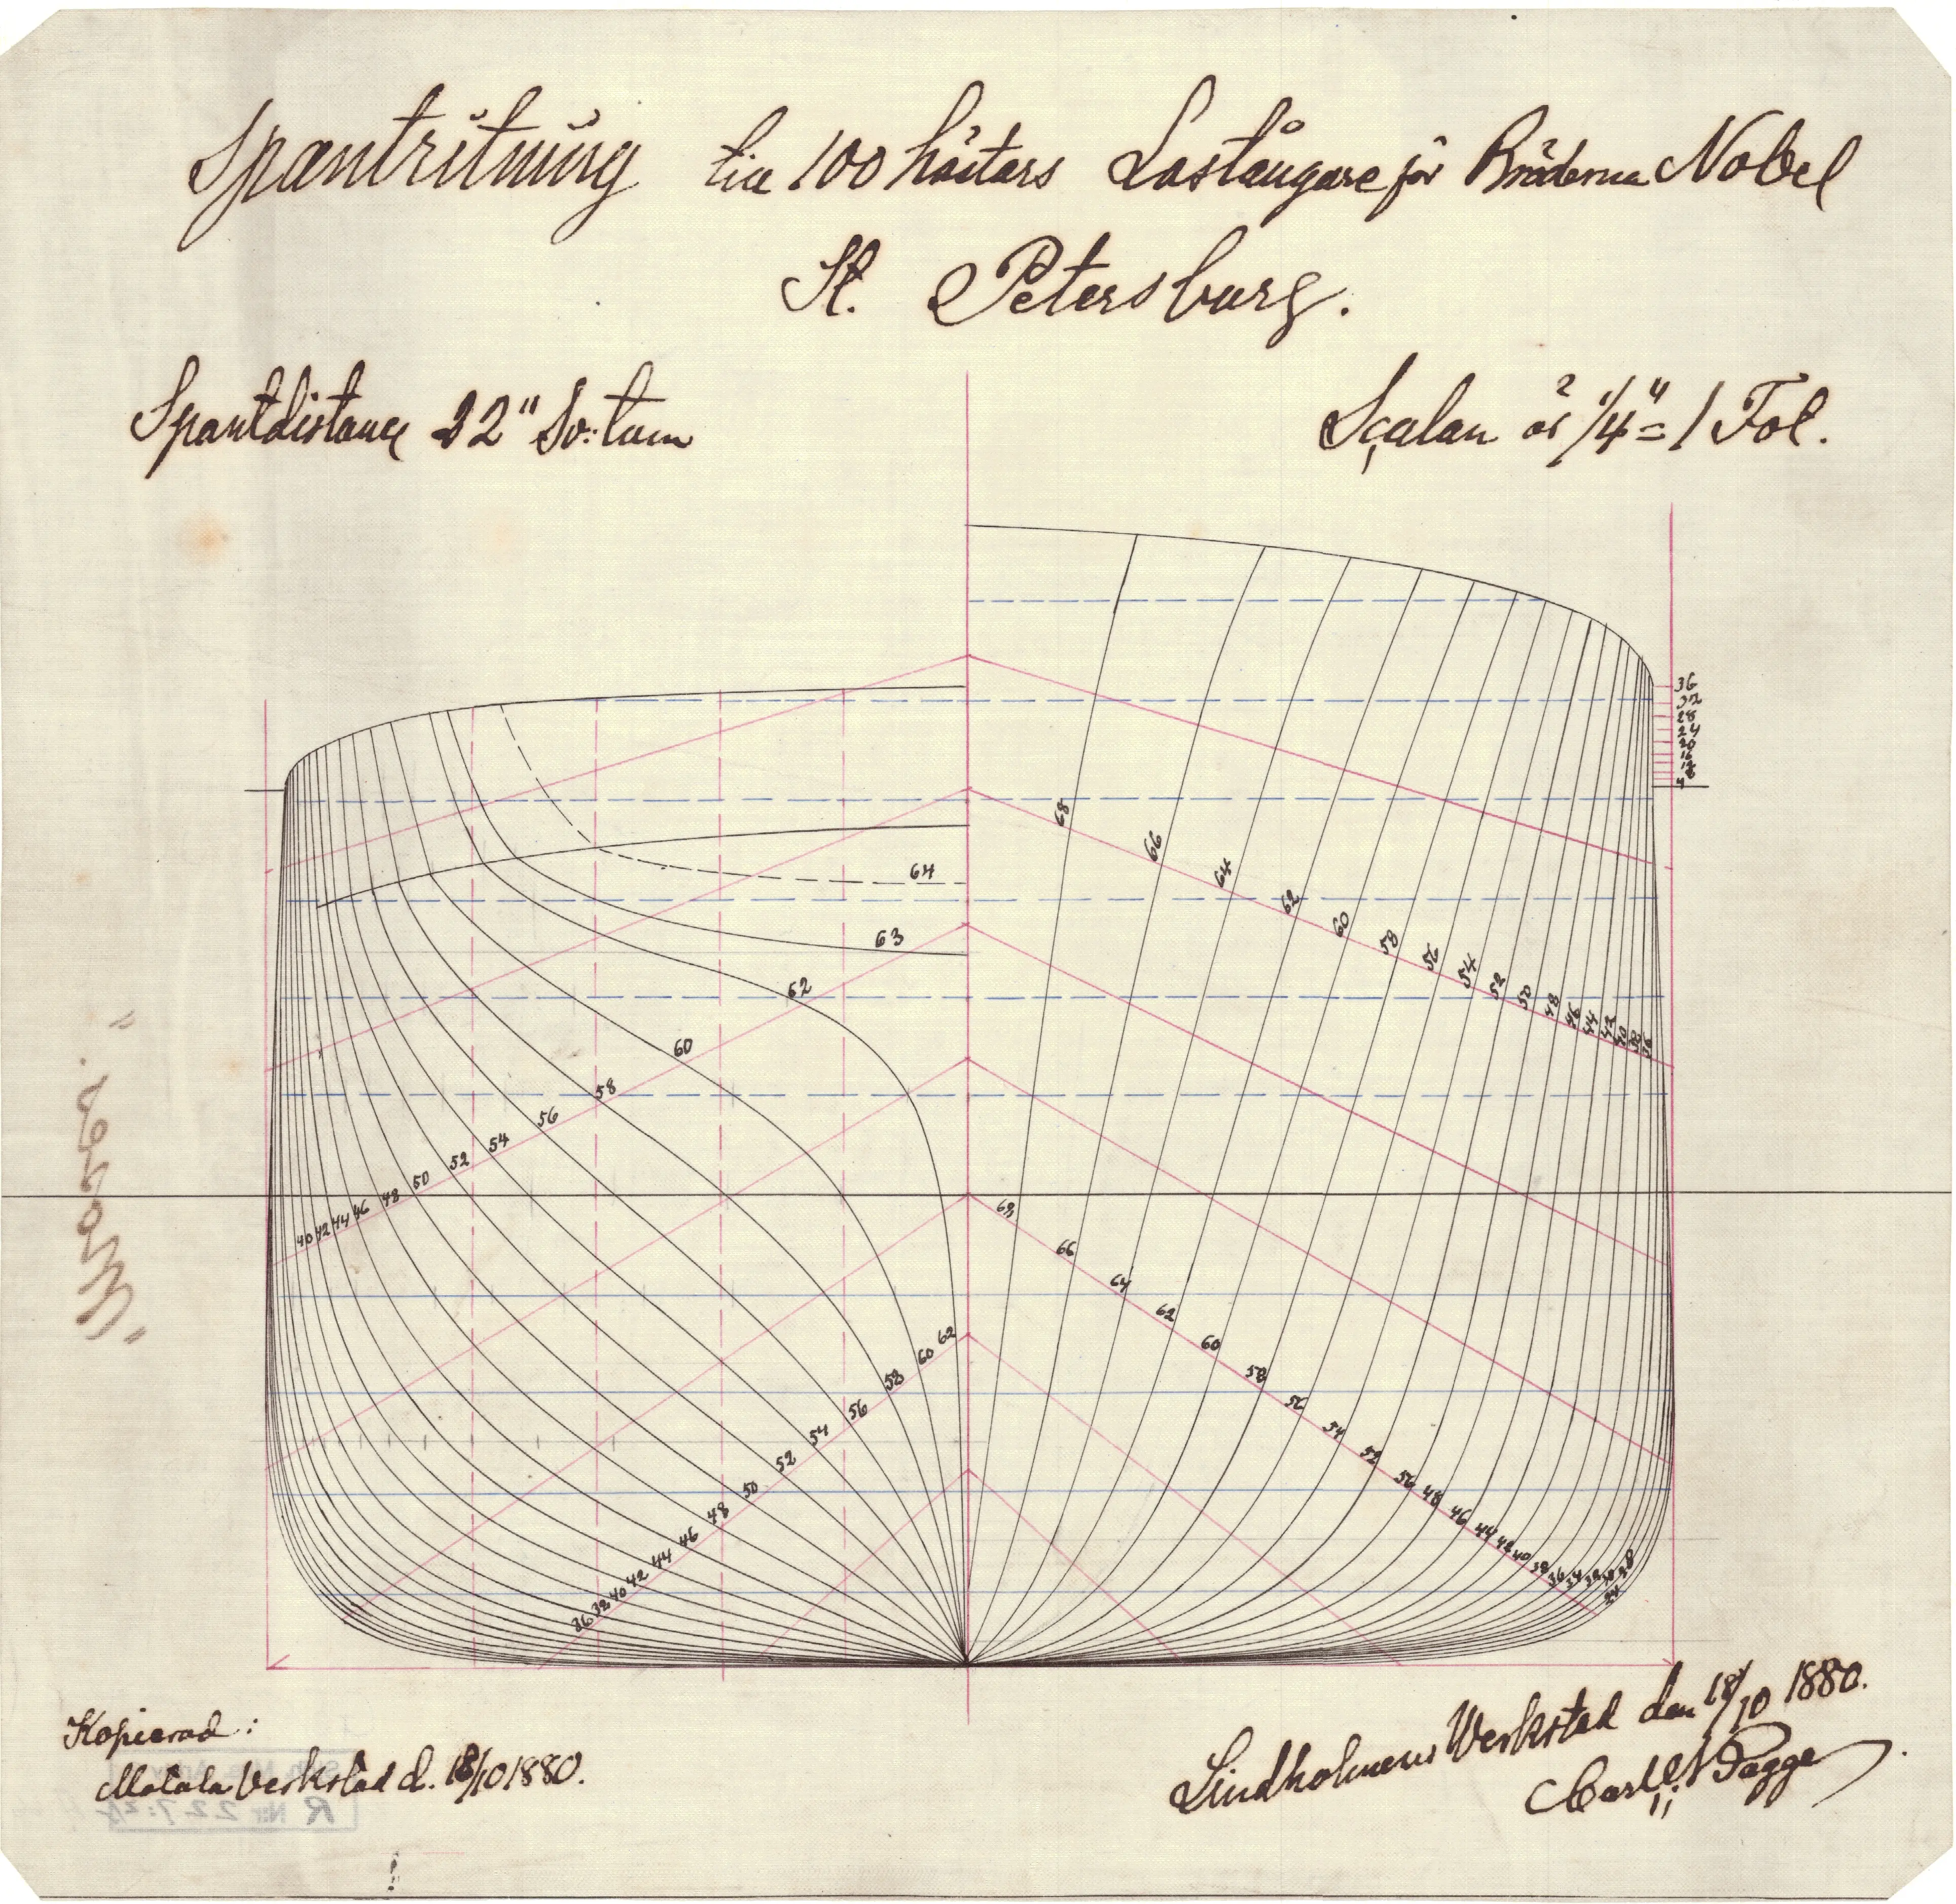 Spantritning till 100 hästars Lastångare för Bröderna Nobel
St. Petersburg.
Spantdistance 22" Sv: tum
Scalan är 1/4" = 1 Fot.
36
32
28
24
20
16
12
8
4
68
66
64
62
60
58
56
54
52
50
48
46
44
42
40
38
36
64
63
62
60
58
56
54
52
50
48
46
44
42
40
68
66
64
62
60
58
56
54
52
50
48
46
44
42
40
38
36
34
62
60
58
56
54
52
50
48
46
44
42
40
38
36
Kopierad:
Motala Verkstad d. 18/10 1880.
R Nr 227:
Lindholmens Werkstad den 18/10 1880.
Carl